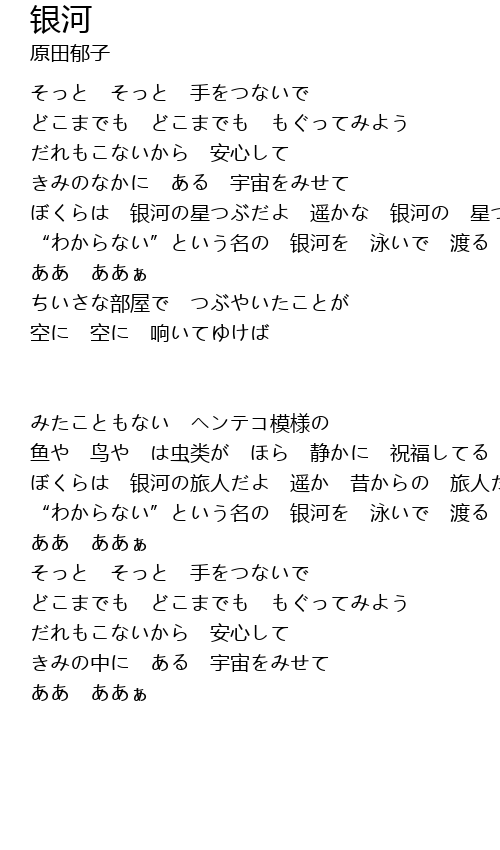 银河
原田郁子
そっと　そっと　手をつないで
どこまでも　どこまでも　もぐってみよう
だれもこないから　安心して
きみのなかに　ある　宇宙をみせて
ぼくらは　银河の星つぶだよ　遥かな　银河の　星つ
“わからない”という名の　银河を　泳いで　渡る
ああ　ああぁ
ちいさな部屋で　つぶやいたことが
空に　空に　响いてゆけば
みたこともない　ヘンテコ模様の
鱼や　鸟や　は虫类が　ほら　静かに　祝福してる
ぼくらは　银河の旅人だよ　遥か　昔からの　旅人だ
“わからない”という名の　银河を　泳いで　渡る
ああ　ああぁ
そっと　そっと　手をつないで
どこまでも　どこまでも　もぐってみよう
だれもこないから　安心して
きみの中に　ある　宇宙をみせて
ああ　ああぁ